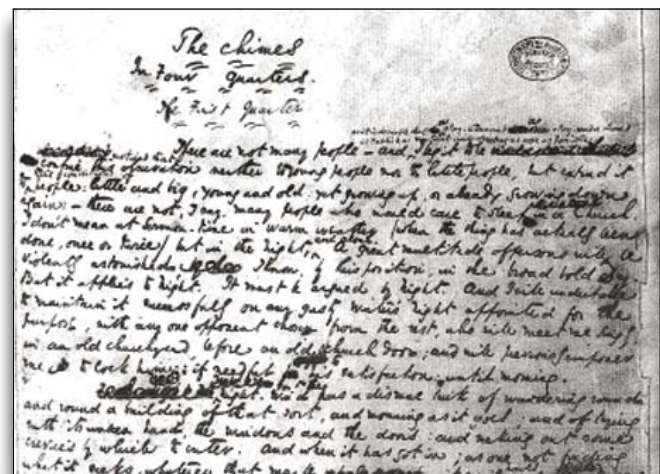 The Chimes
In Four Quarters.
The First Quarter
There are not many people – and
confine this observation neither to young people nor to little people, but extend it
people: little and big, young and old: yet growing up, or already growing down
again – there are not, I say, many people who would care to sleep in a Church.
I don't mean at Sermon-time in warm weather (when the thing has actually been
done, once or twice) but in the night, and alone. A great multitude of persons will be
violently astonished, I know, by this position, in the broad bold Day.
But it applies to Night. It must be argued by Night. And I will undertake
to maintain it successfully on any gusty winter's night appointed for the
purpose, with any one opponent chosen from the rest, who will meet me singly
in an old churchyard, before an old church door; and will previously empower
me to lock him in if needful to his satisfaction, until morning.
night-wind has a dismal trick of wandering round
and round a building of that sort, and moaning as it goes; and of trying
with its unseen hand, the windows and the doors; and seeking out some
crevices by which to enter. And when it has got in; as one not finding
what it seeks, whatever that may be